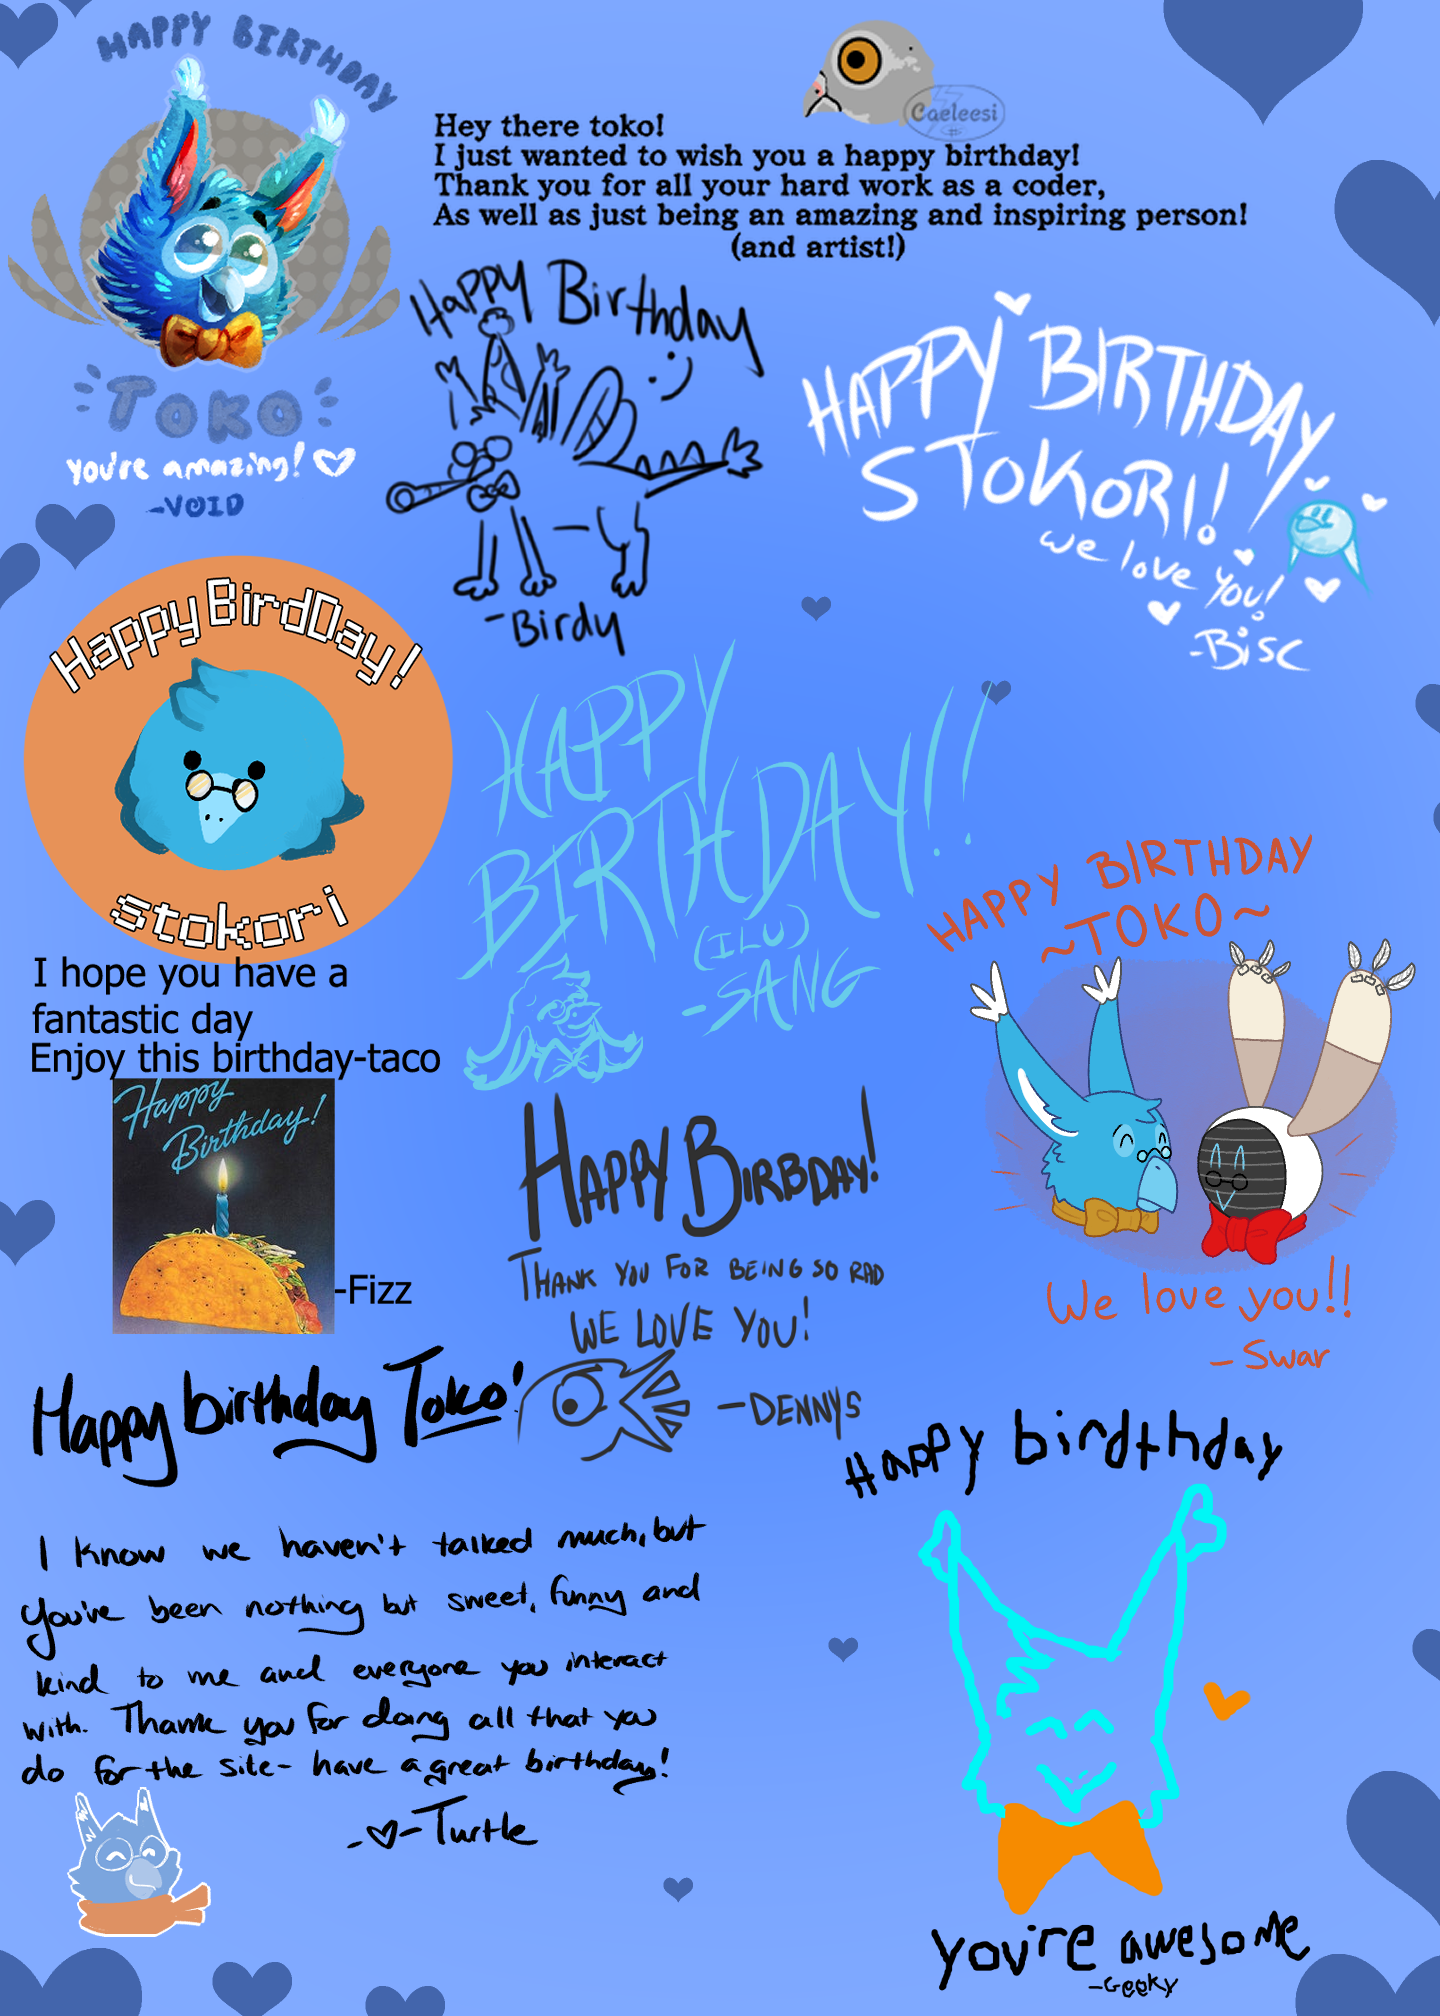 HAPPY BIRTHDAY
TOKO
you're amazing! ♡
-VOID
Caeleesi
Hey there toko!
I just wanted to wish you a happy birthday!
Thank you for all your hard work as a coder,
As well as just being an amazing and inspiring person!
(and artist!)
Happy Birthday
:)
-Birdy
HAPPY BIRTHDAY
STOKORI!!
we love you!
-Bisc
Happy BirdDay!
stokori
I hope you have a
fantastic day
Enjoy this birthday-taco
Happy
Birthday!
-Fizz
HAPPY
BIRTHDAY!!
(ILU)
-SANG
HAPPY BIRTHDAY
~TOKO~
We love you!!
- Swar
HAPPY BIRBDAY!
THANK YOU FOR BEING SO RAD
WE LOVE YOU!
-DENNYS
Happy birthday Toko!
I know we haven't talked much, but
you've been nothing but sweet, funny and
kind to me and everyone you interact
with. Thank you for doing all that you
do for the site- have a great birthday!
-♡-Turtle
Happy birdthday
you're awesome
-Geeky